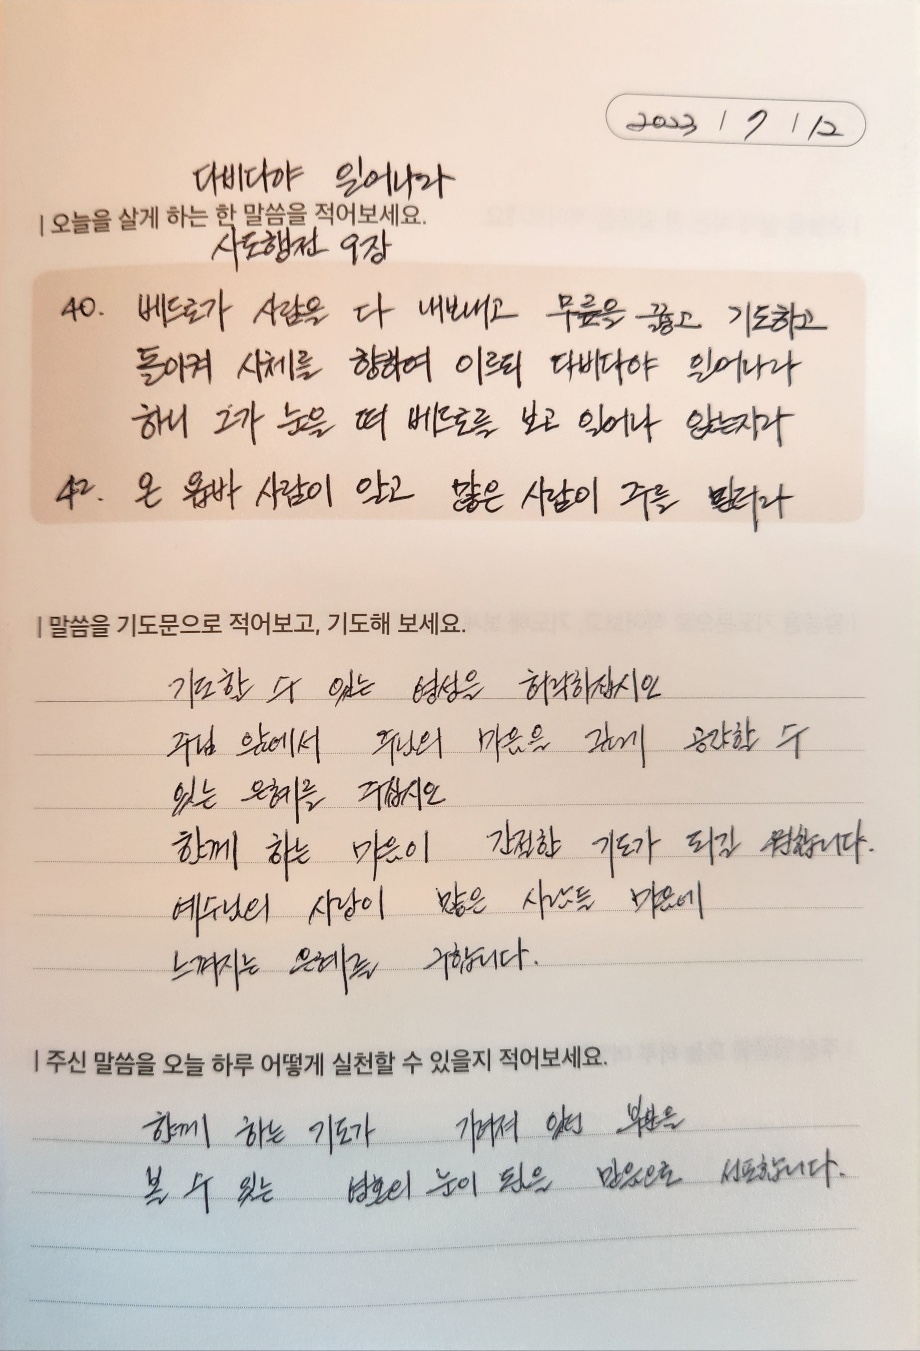 2023 / 7 / 12
다비다야 일어나라
| 오늘을 살게 하는 한 말씀을 적어보세요.
사도행전 9장
40. 베드로가 사람을 다 내보내고 무릎을 꿇고 기도하고
돌이켜 시체를 향하여 이르되 다비다야 일어나라
하니 그가 눈을 떠 베드로를 보고 일어나 앉는지라
42. 온 욥바 사람이 알고 많은 사람이 주를 믿더라
| 말씀을 기도문으로 적어보고, 기도해 보세요.
기도할 수 있는 영성을 허락하십시오
주님 앞에서 주님의 마음을 공감할 수
있는 은혜를 주십시오
함께 하는 마음이 간절한 기도가 되길 원합니다.
예수님의 사랑이 많은 사람들 마음에
느껴지는 은혜를 구합니다.
| 주신 말씀을 오늘 하루 어떻게 실천할 수 있을지 적어보세요.
함께 하는 기도가 가려져 있던
볼 수 있는 눈이 믿음으로 선포합니다.